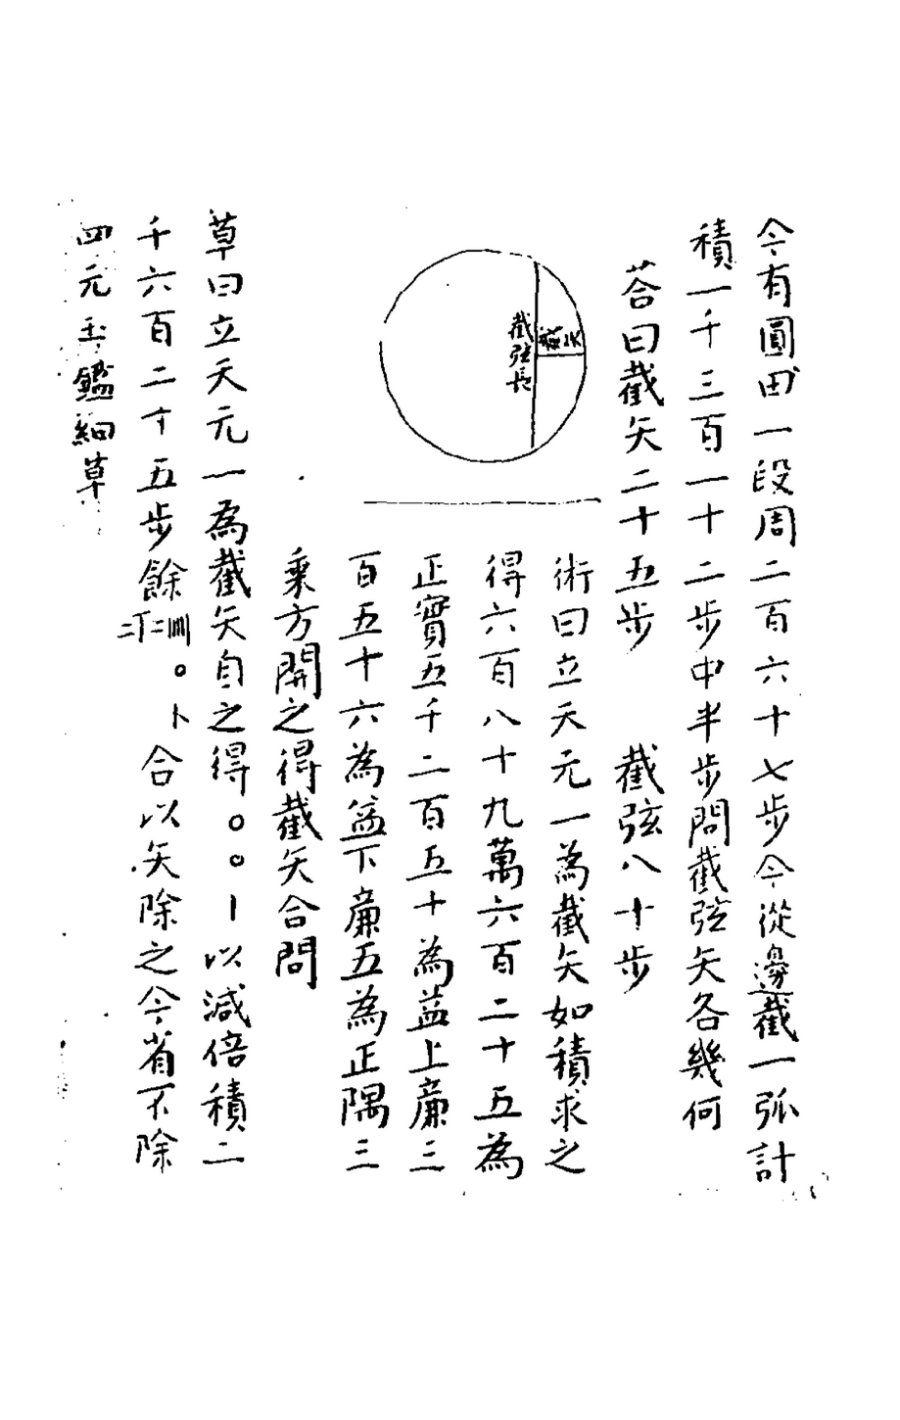 今有圓田一段周二百六十七步今從邊截一弧計
積一千三百一十二步中半步問截弦矢各幾何
荅曰截矢二十五步　截弦八十步
截弦長
術曰立天元一為截矢如積求之
得六百八十九萬六百二十五為
正實五千二百五十為益上廉三
百五十六為益下廉五為正隅三
乘方開之得截矢合問
草曰立天元一為截矢自之得〇〇〡以減倍積二
千六百二十五步餘 〇卜合以矢除之今省不除
四元玉鑑細草